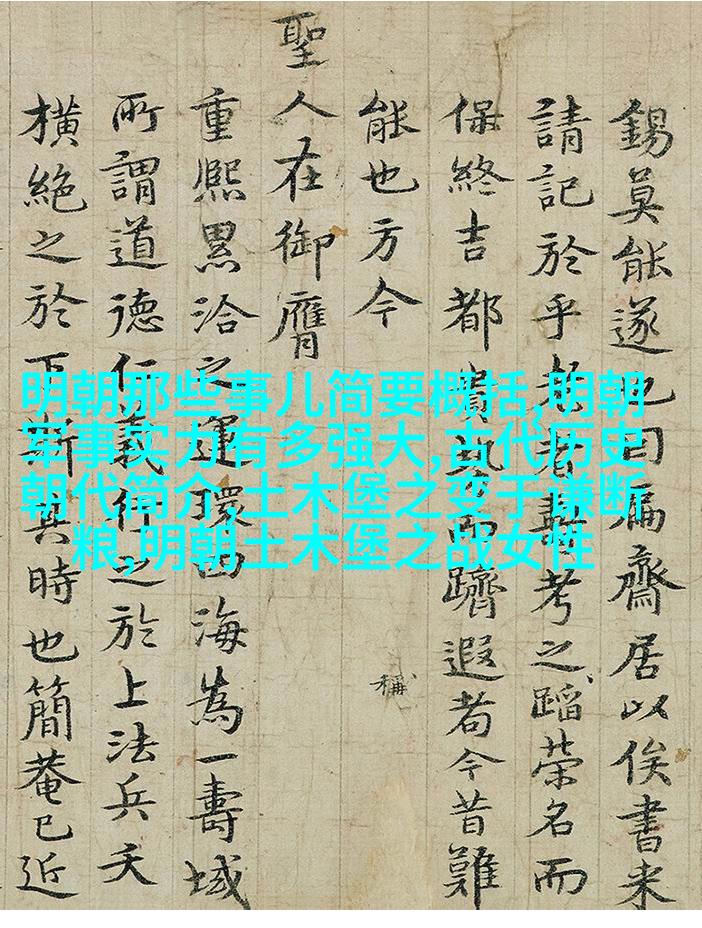 錫莫能遂也因扁齋居以俟書来
請記於乎壽考之蹈榮名而
保終吉都貴而躋遐耇今昔難
能也方今
稱
聖人在御膺
重熙累洽之運環四海為一壽域
所謂道德仁義行之於上法兵夭
橫絶之於下斯其時也簡菴已近
明朝那些事儿简要概括,明朝
军事实力有多强大,古代历史
朝代简介,土木堡之变于谦断
粮,明朝土木堡之战女性